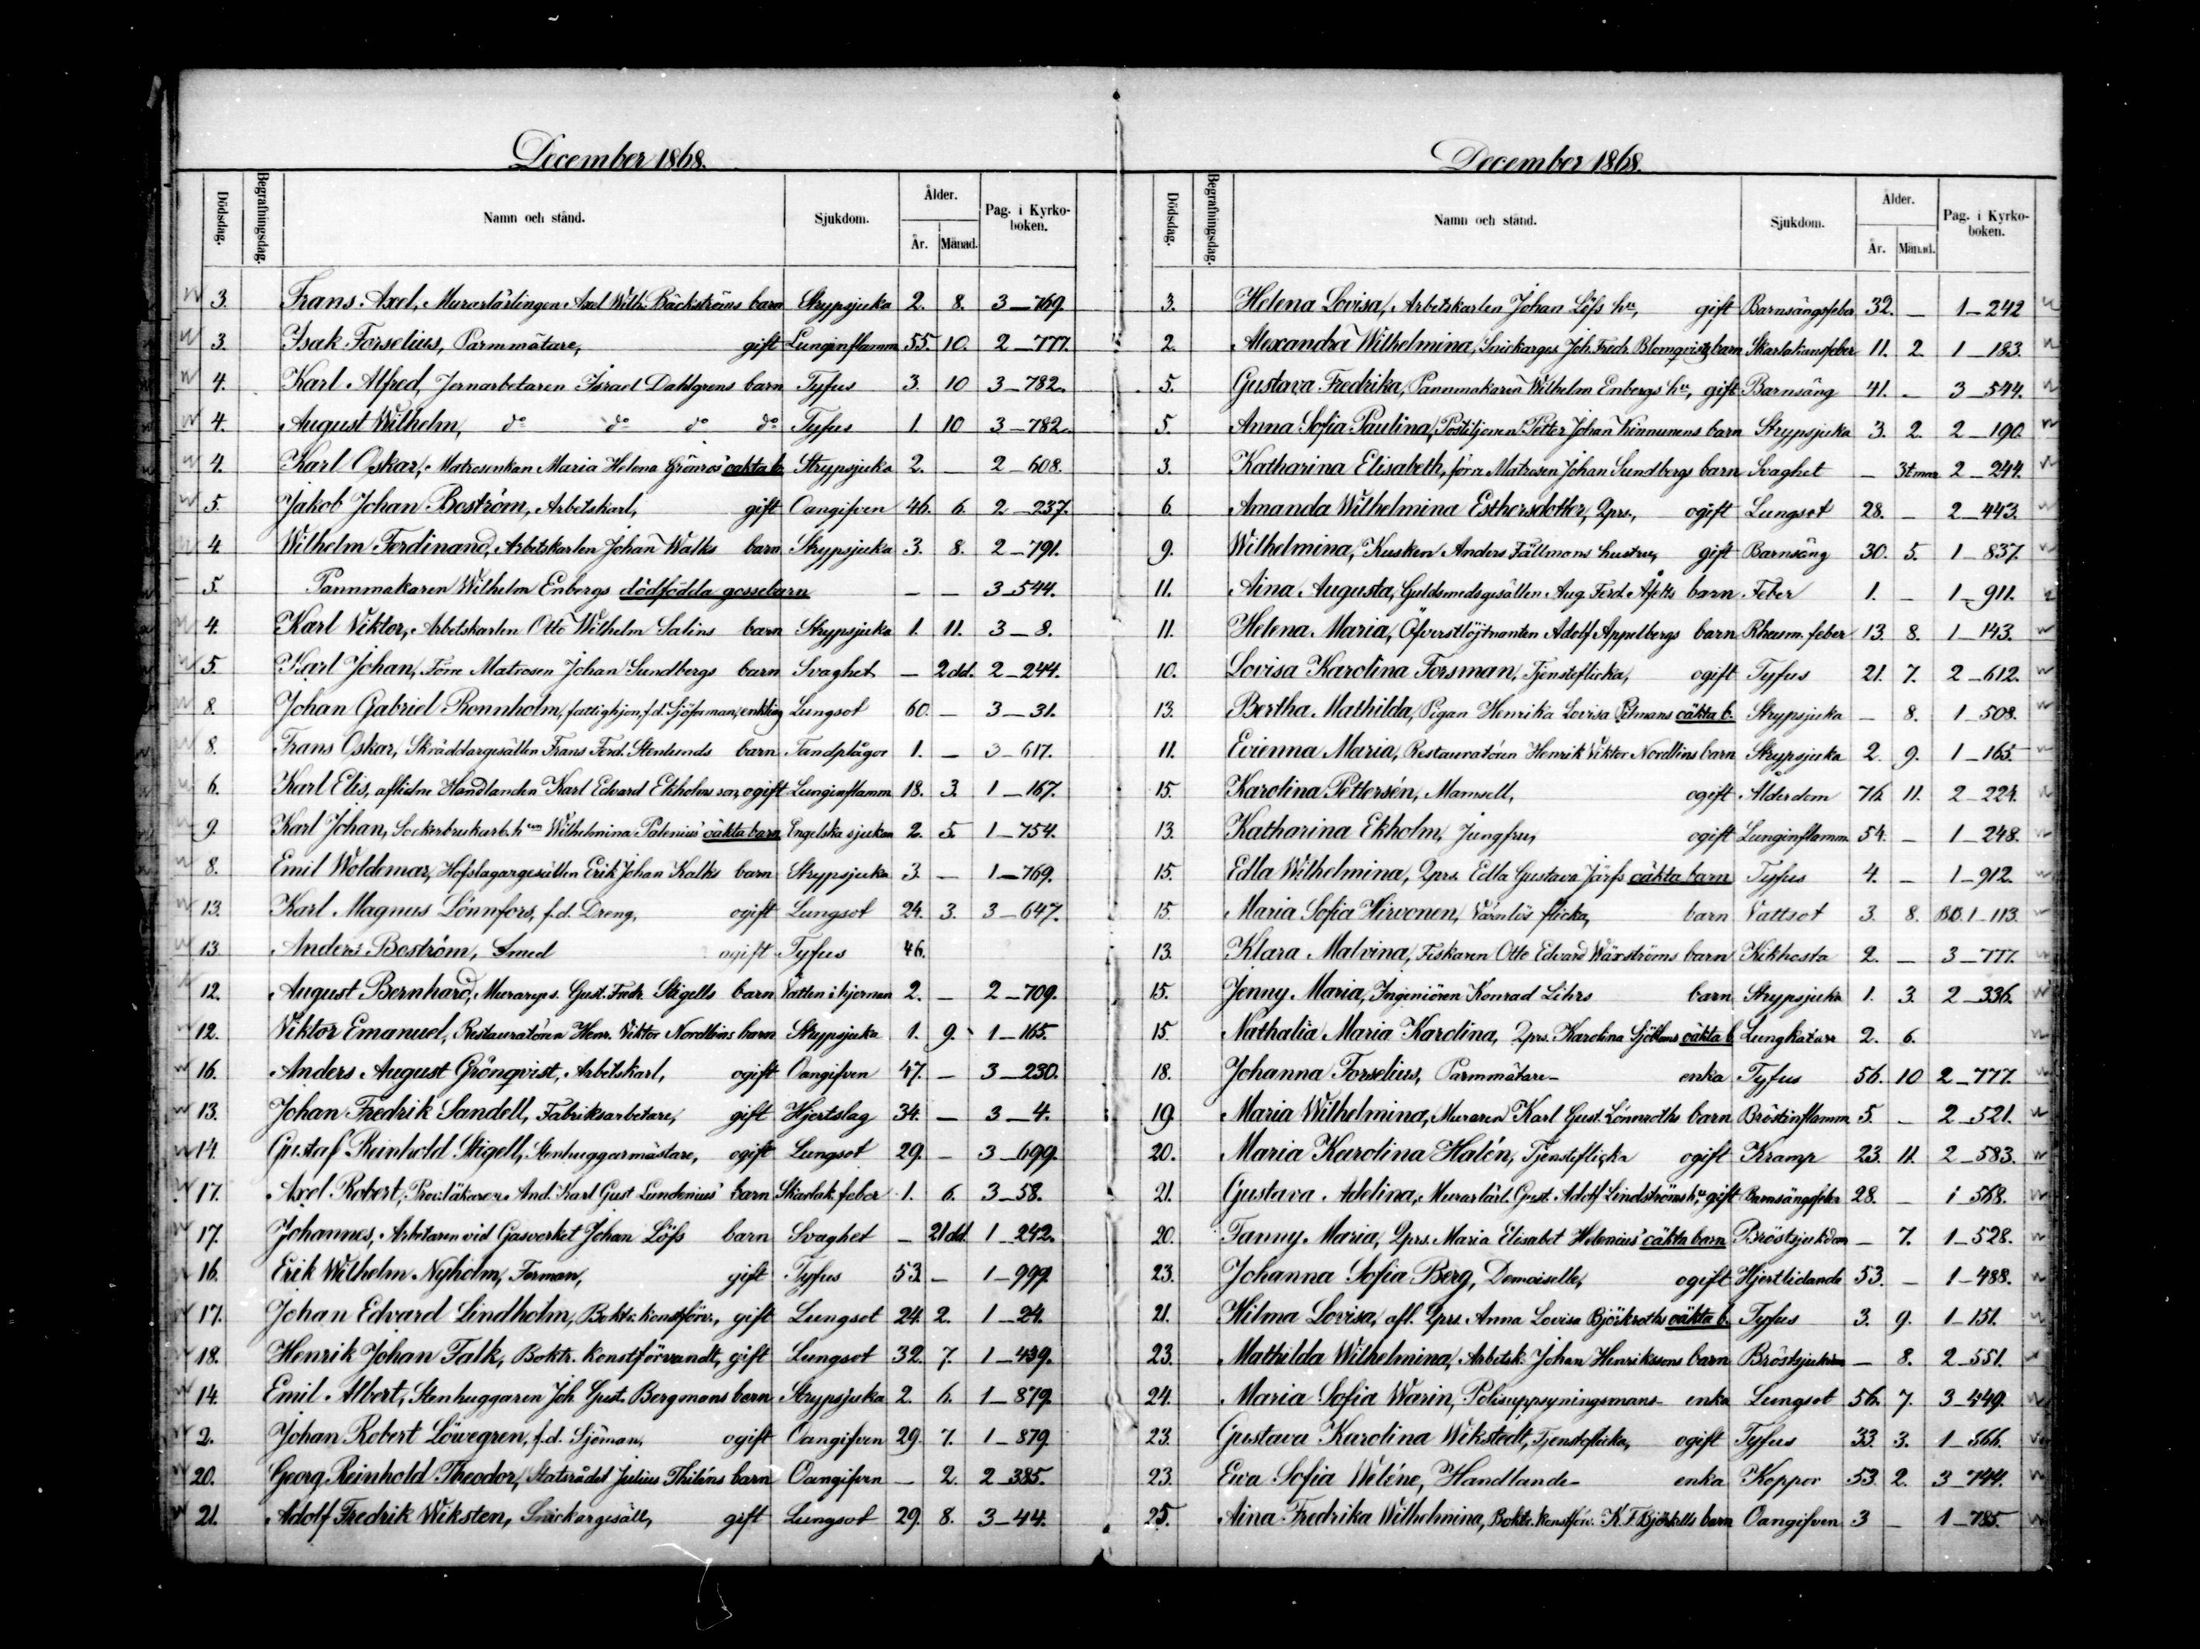 December 1868.
Dödsdag. Begrafningsdag. Namn och stånd. Sjukdom. Ålder. År. Månad. Pag. i Kyrko-boken.
3. Frans Axel, Murarlärlingen Axel Wilh. Bäckströms barn Strypsjuka 2. 8. 3_769.
3. Isak Forselius, Parmmätare, gift Lunginflamm 55. 10. 2_777.
4. Karl Alfred, Jernarbetaren Israel Dahlgrens barn Tyfus 3. 10 3_782.
4. August Wilhelm, do do do do Tyfus 1. 10 3_782.
4. Karl Oskar, Matrosenkan Maria Helena Grönros' oäkta b. Strypsjuka 2. _ 2_608.
5. Jakob Johan Boström, Arbetskarl, gift Oangifven 46. 6. 2_237.
4. Wilhelm Ferdinand, Arbetskarlen Johan Walks barn Strypsjuka 3. 8. 2_791.
5. Pannmakaren Wilhelm Enbergs dödfödda gossebarn _ _ 3_544.
4. Karl Viktor, Arbetskarlen Otto Wilhelm Salins barn Strypsjuka 1. 11. 3_8.
5. Karl Johan, Förre Matrosen Johan Sundbergs barn Svaghet _ 2dd. 2_244.
8. Johan Gabriel Rönnholm, fattighjon, f.d. Sjöforman, enkling Lungsot 60. _ 3_31.
8. Frans Oskar, Skräddargesällen Frans Ferd. Stenlunds barn Tandplågor 1. _ 3_617.
6. Karl Elis, aflidne Handlanden Karl Edvard Ekholms son, ogift Lunginflamm 18. 3. 1_167.
9. Karl Johan, Sockerbruksarb. Wilhelmina Palenius' oäkta barn Engelska sjukan 2. 5. 1_754.
8. Emil Woldemar, Hofslagargesällen Erik Johan Kalks barn Strypsjuka 3. _ 1_769.
13. Karl Magnus Lönnfors, f.d. Dreng, ogift Lungsot 24. 3. 3_647.
13. Anders Boström, Smed ogift Tyfus 46.
12. August Bernhard, Murareges. Gust. Fredr. Stigells barn Vatten i hjernan 2. _ 2_709.
12. Viktor Emanuel, Restauratören Henr. Viktor Nordlins barn Strypsjuka 1. 9. 1_165.
16. Anders August Grönqvist, Arbetskarl, ogift Oangifven 47. _ 3_230.
13. Johan Fredrik Sandell, Fabriksarbetare, gift Hjertslag 34. _ 3_4.
14. Gustaf Reinhold Stigell, Stenhuggarmästare, ogift Lungsot 29. _ 3_699.
17. Axel Robert, Provisläkaren And. Karl Gust Lundenius' barn Skarlak. feber 1. 6. 3_58.
17. Johannes, Arbetaren vid Gasverket Johan Löfs barn Svaghet _ 21dd. 1_242.
16. Erik Wilhelm Nyholm, Forman, gift Tyfus 53. _ 1_999.
17. Johan Edvard Lindholm, Boktr. konstförv., gift Lungsot 24. 2. 1_24.
18. Henrik Johan Falk, Boktr. konstförvandt, gift Lungsot 32. 7. 1_439.
14. Emil Albert, Stenhuggaren Joh. Gust. Bergmans barn Strypsjuka 2. 6. 1_879.
2. Johan Robert Löwegren, f.d. Sjöman, ogift Oangifven 29. 7. 1_879.
20. Georg Reinhold Theodor, Statsrådet Julius Thiléns barn Oangifven _ 2. 2_385.
21. Adolf Fredrik Wiksten, Snickargesäll, gift Lungsot 29. 8. 3_44.
December 1868.
Dödsdag. Begrafningsdag. Namn och stånd. Sjukdom. Ålder. År. Månad. Pag. i Kyrko-boken.
3. Helena Lovisa, Arbetskarlen Johan Löfs hu, gift Barnsängsfeber 32. _ 1_242
2. Alexandra Wilhelmina, Snickarges. Joh. Fredr. Blomqvists barn Skarlakansfeber 11. 2. 1_183.
5. Gustava Fredrika, Pannmakaren Wilhelm Enbergs hu, gift Barnsäng 41. _ 3_544.
5. Anna Sofia Paulina, Postiljonen Petter Johan Kinnunens barn Strypsjuka 3. 2. 2_190.
3. Katharina Elisabeth, förra Matrosen Johan Sundbergs barn Svaghet _ 3tmar 2_244.
6 Amanda Wilhelmina Esthersdotter, Qprs., ogift Lungsot 28. _ 2_443.
9. Wilhelmina, Kusken Anders Fällmans hustru, gift Barnsäng 30. 5. 1_837.
11. Aina Augusta, Guldsmedsgesällen Aug. Ferd. Åfelts barn Feber 1. _ 1_911.
11. Helena Maria, Öfverstlöjtnanten Adolf Appelbergs barn Rheum. feber 13. 8. 1_143.
10. Lovisa Karolina Forsman, Tjensteflicka, ogift Tyfus 21. 7. 2_612.
13. Bertha Mathilda, Pigan Henrika Lovisa Pitmans oäkta b. Strypsjuka _ 8. 1_508.
11. Evienna Maria, Restauratören Henrik Viktor Nordlins barn Strypsjuka 2. 9. 1_165
15. Karolina Pettersén, Mamsell, ogift Ålderdom 76. 11. 2_224.
13. Katharina Ekholm, Jungfru, ogift Lunginflamm. 54. _ 1_248.
15. Edla Wilhelmina, Qprs. Edla Gustava Järfs oäkta barn Tyfus 4. _ 1_912.
15. Maria Sofia Hirvonen, Värnlös flicka, barn Vattsot 3. 8. B.B. 1_113.
13. Klara Malvina, Fiskaren Otto Edvard Wäxströms barn Kikhosta 2. _ 3_777.
15. Jenny Maria, Ingeniören Konrad Lihrs barn Strypsjuka 1. 3. 2_336.
15. Nathalia Maria Karolina, Qprs. Karolina Sjöbloms oäkta b. Lungkatarr 2. 6.
18. Johanna Forselius, Parmmätare- enka Tyfus 56. 10 2_777.
19. Maria Wilhelmina, Muraren Karl Gust. Lönnroths barn Bröstinflamm 5. _ 2_521.
20. Maria Karolina Halén, Tjensteflicka ogift Kramp 23. 11. 2_583.
21. Gustava Adelina, Murarlärl. Gust. Adolf Lindströms hu, gift Barnsängsfeber 28. _ 1 568.
20. Fanny Maria, Qprs. Maria Elisabet Helenius' oäkta barn Bröstsjukdom _ 7. 1_528.
23. Johanna Sofia Berg, Demoiselle, ogift Hjertlidande 53. _ 1_488.
21. Hilma Lovisa, afl. Qprs. Anna Lovisa Björkroths oäkta b. Tyfus 3. 9. 1_151.
23. Mathilda Wilhelmina, Arbetsk. Johan Henrikssons barn Bröstsjukdom _ 8. 2_551.
24. Maria Sofia Warin, Polisuppsyningsmans- enka Lungsot 56. 7. 3_449.
23. Gustava Karolina Wikstedt, Tjensteflicka, ogift Tyfus 33. 3. 1_866.
23. Ewa Sofia Weléne, Handlande- enka Koppor 53. 2. 3_744.
25. Aina Fredrika Wilhelmina, Boktr. konstförv. K. F. Björkells barn Oangifven 3 _ 1_785.